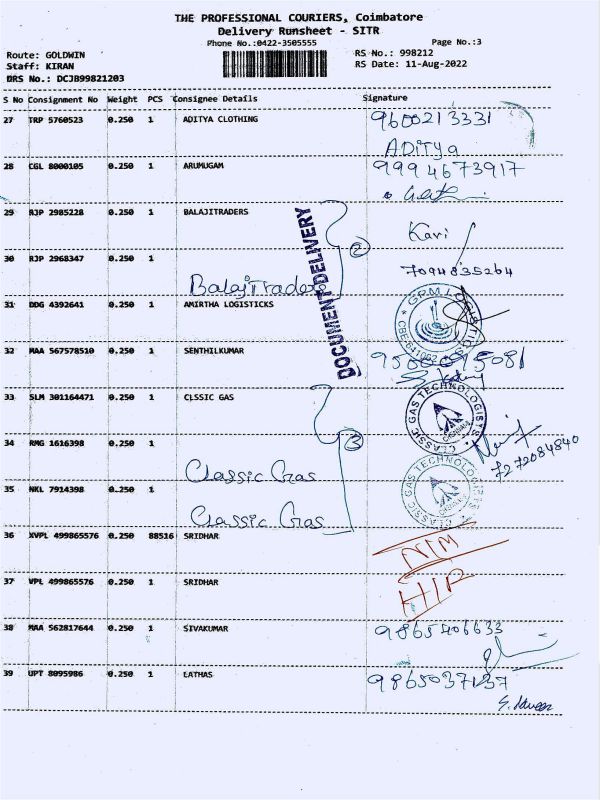 THE PROFESSIONAL COURIERS, Coimbatore
Delivery Runsheet - SITR
Phone No.:0422-3505555 Page No.:3
Route: GOLDWIN RS No.: 998212
Staff: KIRAN RS Date: 11-Aug-2022
DRS No.: DCJB99821203
S No Consignment No Weight PCS Consignee Details Signature
27 TRP 5760523 0.250 1 ADITYA CLOTHING 9600213331
ADITYA
28 CGL 8000105 0.250 1 ARUMUGAM 9994673917
29 RJP 2985228 0.250 1 BALAJITRADERS Kavi
DOCUMENT DELIVERY
2
30 RJP 2968347 0.250 1 7094835264
Balaji Traders
31 DDG 4392641 0.250 1 AMIRTHA LOGISTICKS
32 MAA 567578510 0.250 1 SENTHILKUMAR
33 SLM 301164471 0.250 1 CLSSIC GAS CLASSIC GAS TECHNOLOGISTS
3
34 RMG 1616398 0.250 1 7272084840
Classic Gas
CLASSIC GAS TECHNOLOGISTS
35 NKL 7914398 0.250 1
Classic Gas
36 XVPL 499865576 0.250 88516 SRIDHAR NIM
37 VPL 499865576 0.250 1 SRIDHAR
38 MAA 562817644 0.250 1 SIVAKUMAR 9865406633
39 UPT 8095986 0.250 1 LATHAS 9865037137